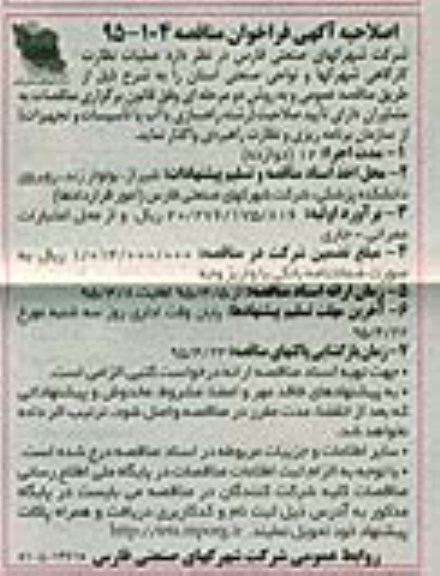 اصلاحیه آگهی فراخوان مناقصه ۱۰۴-۹۵
شرکت شهرکهای صنعتی فارس در نظر دارد عملیات نظارت
کارگاهی شهرکها و نواحی صنعتی استان را به شرح ذیل از
طریق مناقصه عمومی و به روش دو مرحله ای وفق قانون برگزاری مناقصات به
مشاوران دارای تأیید صلاحیت رسته راهسازی و آب یا تأسیسات و تجهیزات از
سازمان برنامه ریزی و نظارت راهبردی واگذار نماید.
۱- مدت اجرا: ۱۲ (دوازده)
۲- محل اخذ اسناد مناقصه و تسلیم پیشنهادات: شیراز، بولوار زند، روبروی
دانشکده پزشکی، شرکت شهرکهای صنعتی فارس (امور قراردادها)
۳- برآورد اولیه: ریال و از محل اعتبارات
عمرانی - جاری
۴- مبلغ تضمین شرکت در مناقصه: ریال به
صورت ضمانتنامه بانکی یا واریز وجه
۵- زمان ارائه اسناد مناقصه: از لغایت
۶- آخرین مهلت تسلیم پیشنهادها: پایان وقت اداری روز سه شنبه مورخ
۷- زمان بازگشایی پاکتهای مناقصه:
• جهت تهیه اسناد مناقصه ارائه درخواست کتبی الزامی است.
• به پیشنهادهای فاقد مهر و امضا، مشروط، مخدوش و پیشنهاداتی
که بعد از انقضا مدت مقرر در مناقصه واصل شود، ترتیب اثر داده
نخواهد شد.
• سایر اطلاعات و جزییات مربوطه در اسناد مناقصه درج شده است.
• با توجه به الزام ثبت اطلاعات مناقصات در پایگاه ملی اطلاع رسانی
مناقصات کلیه شرکت کنندگان در مناقصه می بایست در پایگاه
مذکور به آدرس ذیل ثبت نام و کد کاربری دریافت و همراه پاکات
پیشنهاد خود تحویل نمایند.
روابط عمومی شرکت شهرکهای صنعتی فارس